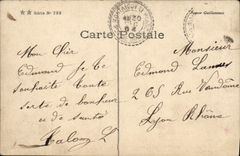 Série Nº 733
Carte Postale
Mon Cher
Edmond je te
souhaite toute
sorte de bonheur
et de santé
Monsieur
Edmond
265 Rue Vendôme
Lyon Rhône